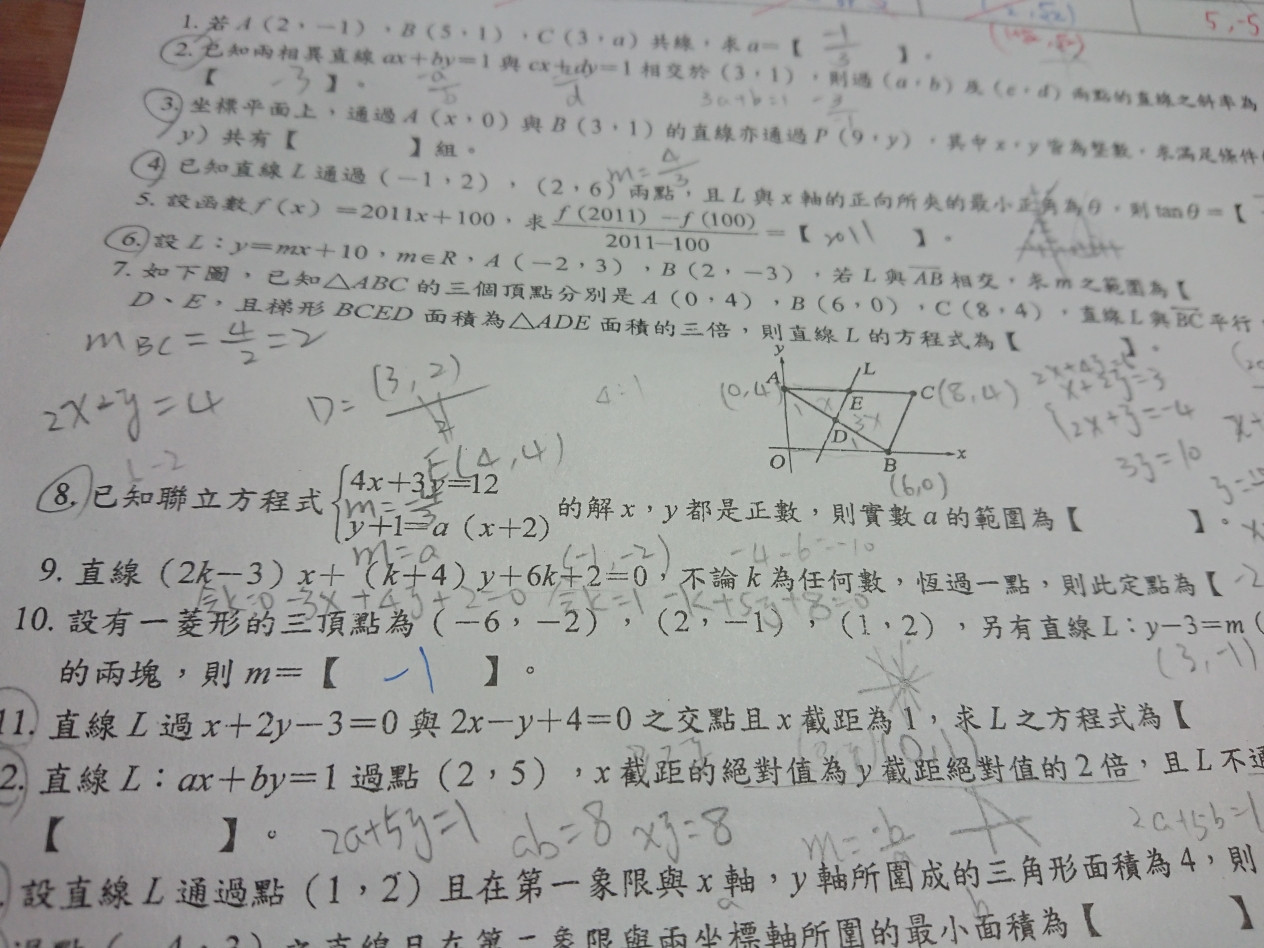 5,-5
1. 若 A(2,-1)、B(5,1)、C(3,a) 共線,求 a=【 -1/3 】。
2. 已知兩相異直線 ax+by=1 與 cx+dy=1 相交於 (3,1),則過 (a,b) 及 (c,d) 兩點的直線之斜率為
【 -3 】。
3a+b=1
3. 坐標平面上,通過 A(x,0) 與 B(3,1) 的直線亦通過 P(9,y),其中 x,y 皆為整數,求滿足條件
y)共有【 】組。
m=4/3
4. 已知直線 L 通過 (-1,2),(2,6) 兩點,且 L 與 x 軸的正向所夾的最小正角為 θ,則 tanθ=【
5. 設函數 f(x)=2011x+100,求 f(2011)-f(100)/2011-100=【 2011 】。
6. 設 L:y=mx+10,m∈R,A(-2,3)、B(2,-3),若 L 與 AB 相交,求 m 之範圍為【
7. 如下圖,已知△ABC 的三個頂點分別是 A(0,4),B(6,0),C(8,4),直線 L 與 BC 平行,
D、E,且梯形 BCED 面積為△ADE 面積的三倍,則直線 L 的方程式為【 】。
mBC=4/2=2
2x+y=4
D=(3,2)
E(4,4)
4:1
y
L
A
(0,4)
C(8,4)
E
D
O
B
x
(6,0)
x+2y=3
2x+y=-4
3y=10
8. 已知聯立方程式 4x+3y=12
y+1=a(x+2)
的解 x,y 都是正數,則實數 a 的範圍為【 】。
m=-4/3
m=a
(-1,-2)
-4-6=-10
9. 直線 (2k-3)x+(k+4)y+6k+2=0,不論 k 為任何數,恆過一點,則此定點為【 -2
k=0 -3x+4y+2=0 k=1 -x+5y+8=0
10. 設有一菱形的三頂點為 (-6,-2),(2,-1),(1,2),另有直線 L:y-3=m(
的兩塊,則 m=【 -1 】。
(3,-1)
11. 直線 L 過 x+2y-3=0 與 2x-y+4=0 之交點且 x 截距為 1,求 L 之方程式為【
2. 直線 L:ax+by=1 過點 (2,5),x 截距的絕對值為 y 截距絕對值的 2 倍,且 L 不通
【 】。
2a+5y=1
ab=8
xy=8
2a+5b=1
. 設直線 L 通過點 (1,2) 且在第一象限與 x 軸,y 軸所圍成的三角形面積為 4,則
a
b
【 】
過點(-4,3)之直線且在第二象限與兩坐標軸所圍的最小面積為【